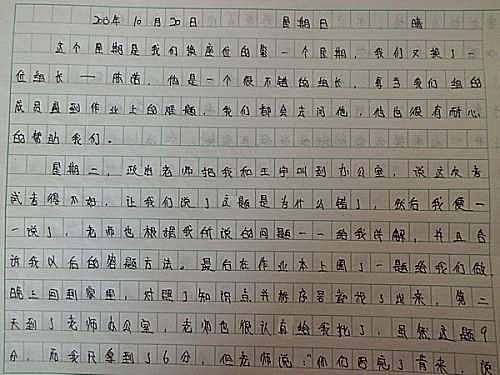 2013年10月20日 星期日 晴
这个星期是我们换座位的第一个星期，我们又换了一
位组长——陈蕾，他是一个很不错的组长，每当我们组的
成员遇到作业上的难题，我们都会去问他，他也很有耐心
的帮助我们。
星期二，政治老师把我和王宇叫到办公室，说这次考
试考得不好，让我们说了这题是为什么错了，然后我便一
一说了，老师也根据我所说的问题一一给我讲解，并且告
诉我以后的答题方法。最后在作业本上圈了一题给我们做
晚上回到家里，对照了知识点并按序号就说了出来，第二
天到了老师办公室，老师也很认真给我批了，虽然这题9
分，而我只拿到了6分，但老师说："你们因完了背来，说